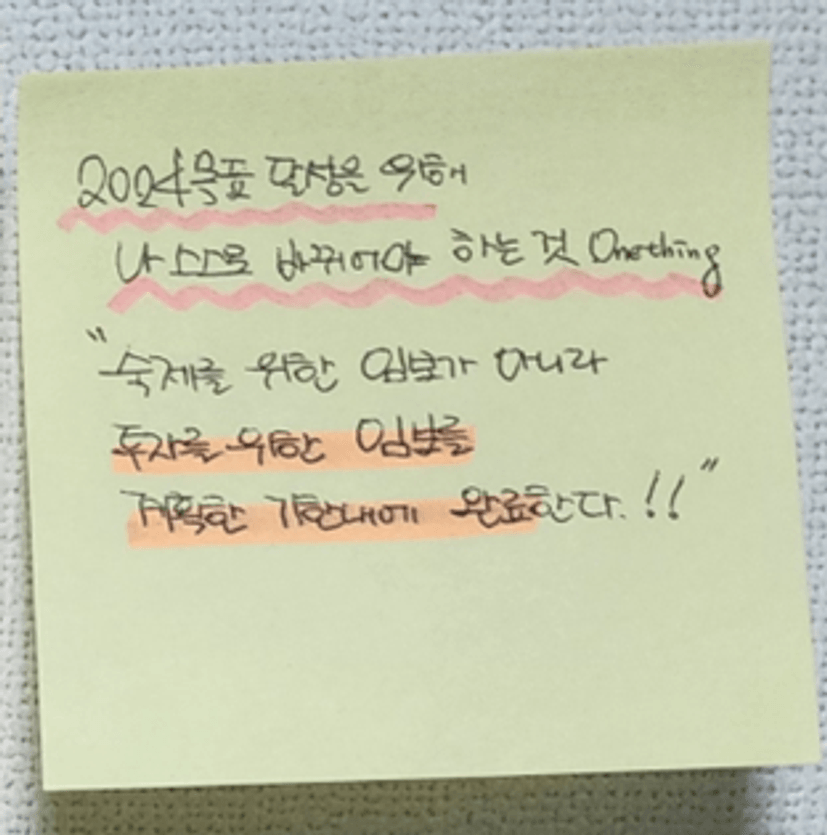 2024목표 달성을 위해
나 스스로 바뀌어야 하는 것 Onething
"숙제를 위한 임보가 아니라
투자를 위한 임보를
계획한 기한내에 완료한다.!!"